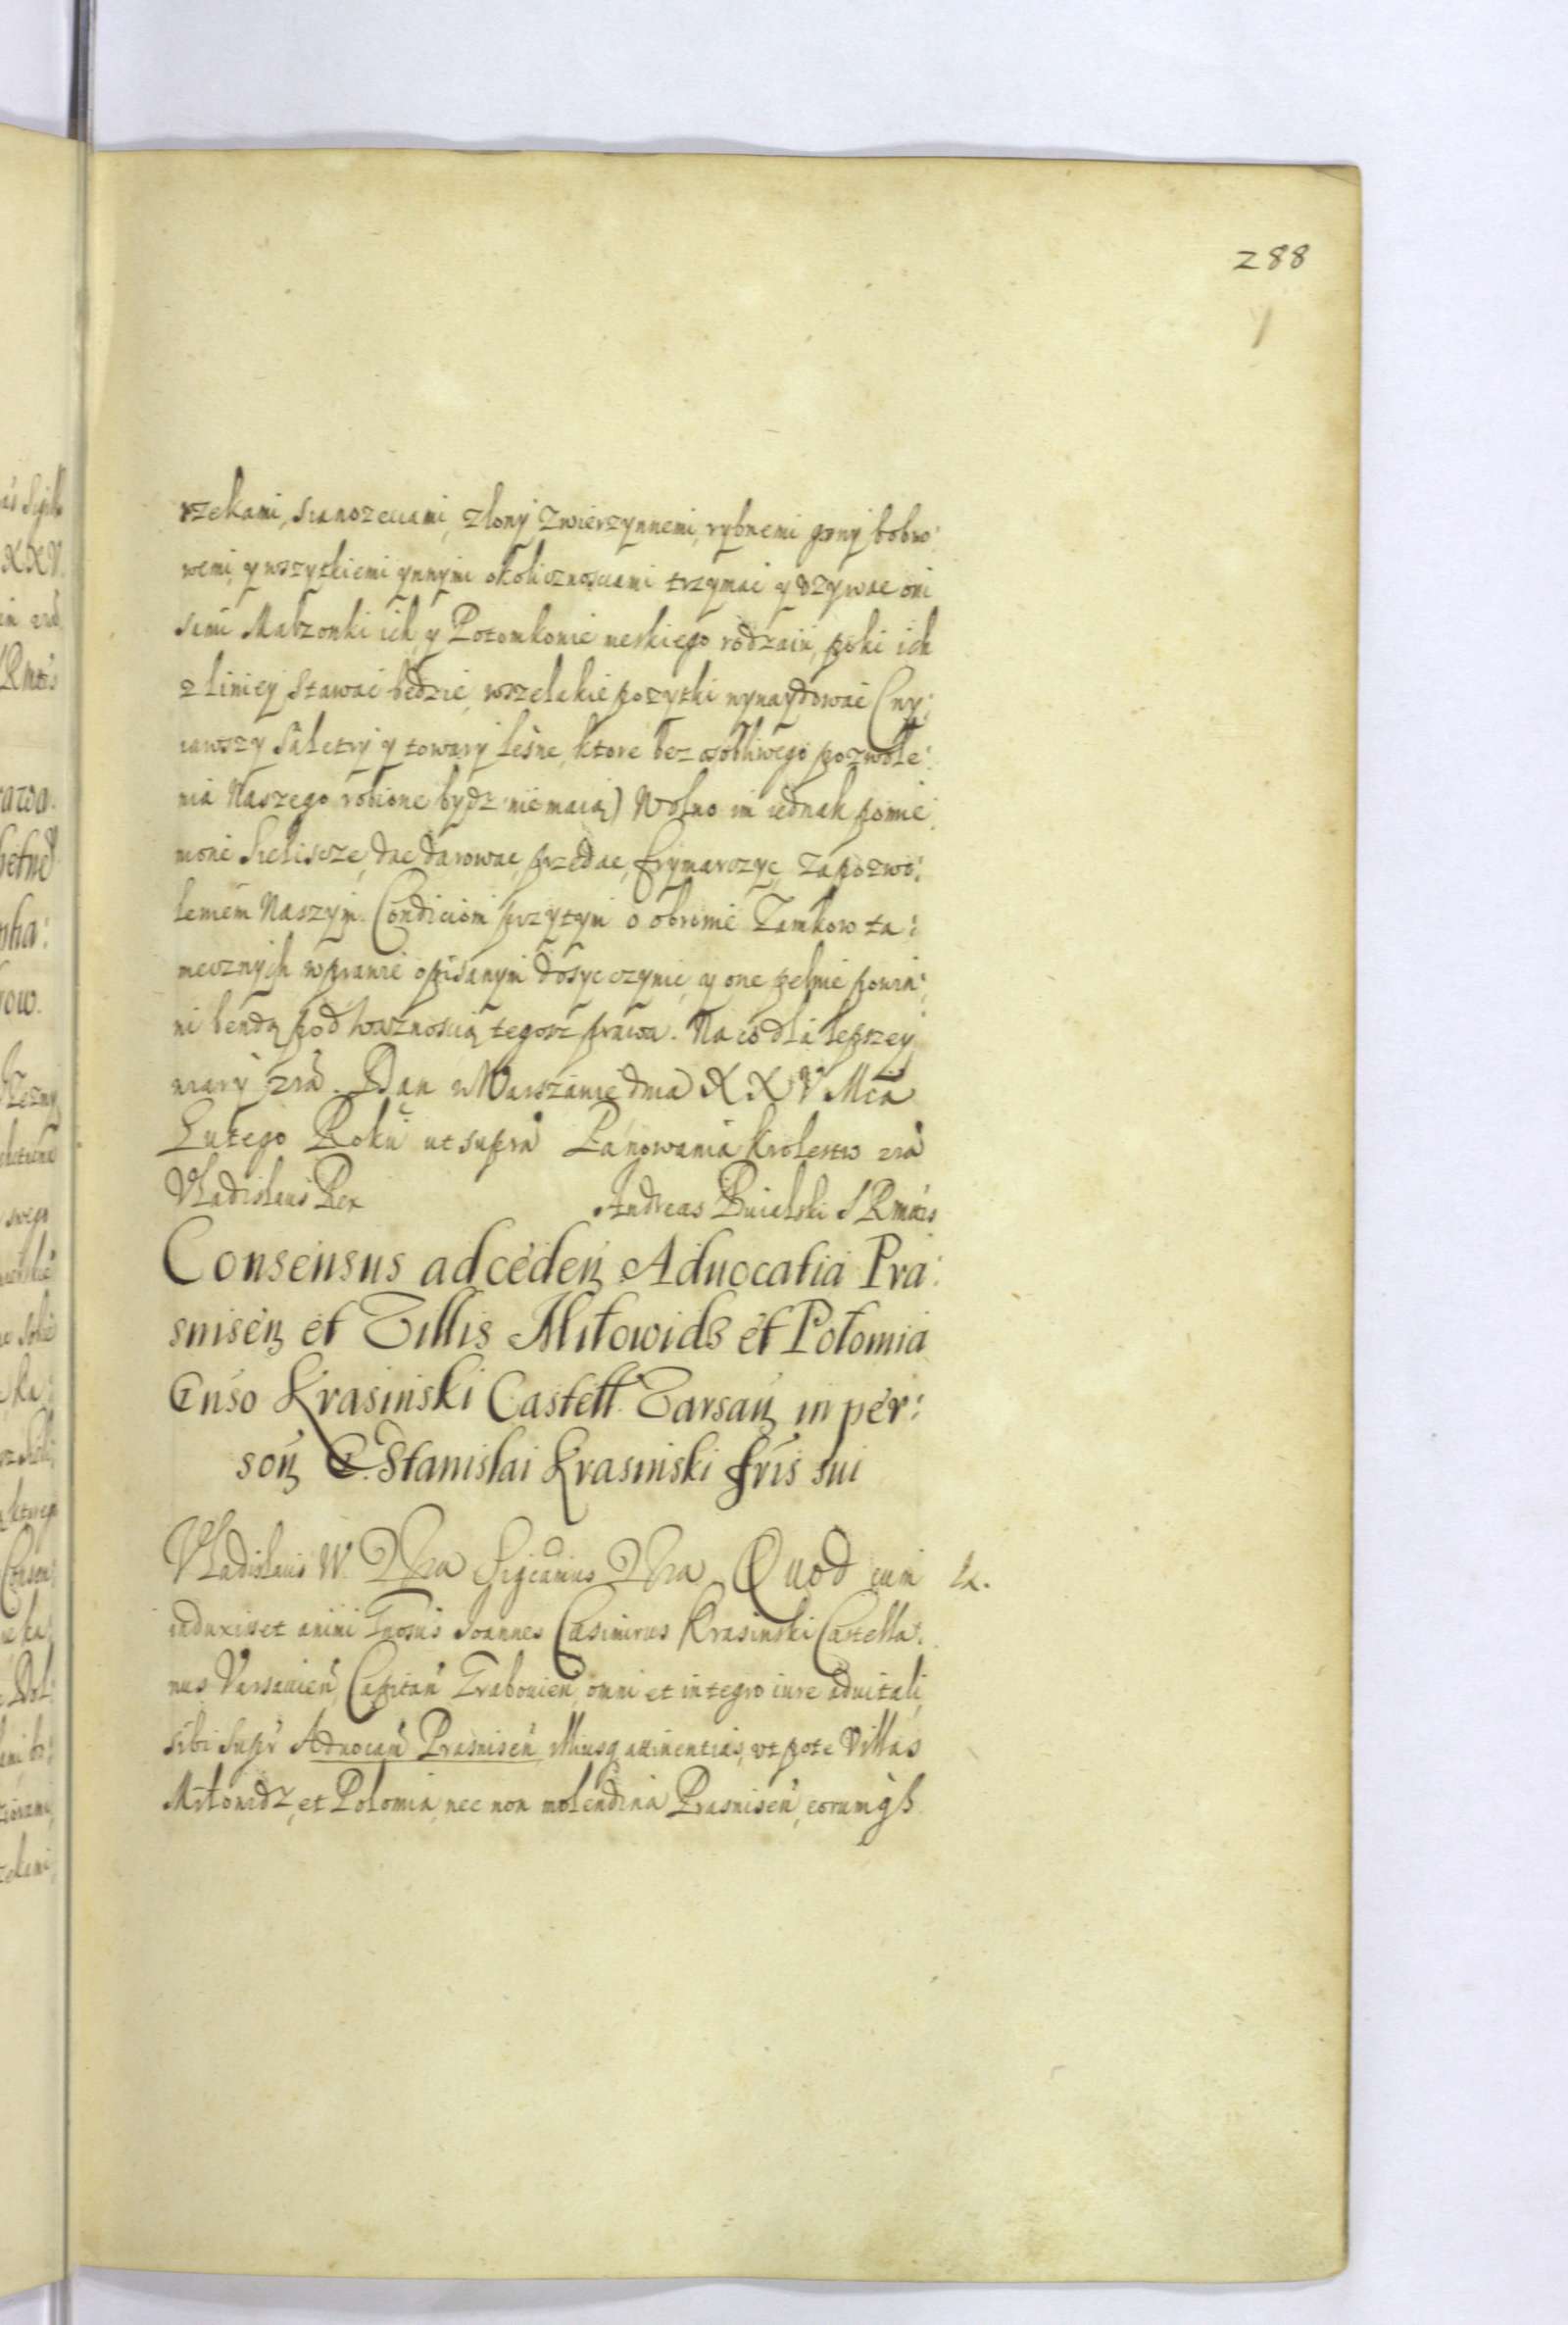 288
rzekami, sianozęciami, z łony Zwierzynnemi, rybnemi gony bobro:
wemi, y wszytkiemi ynnymi okolicznosciami trzymać y vzywac oni
sami Małzonki ich, y Potomkowie meskiego rodzaiu, poki ich
z liniey stawać będzie, wszelakie pozytki wynaydować (wy:
iąwszy Saletry y towary leśne, ktore bez osobliwego pozwole:
nia Naszego robione bydz nie maią) Wolno im iednak pomie
nione Sieliscze, dac darowac, przedac, frymarczyc, za pozwo:
leniem Naszym. Condiciom przytym o obronie Zamkow ta:
mecznych w prawie opisanym dosyc czynić, y one pełnić powin:
ni bendą pod waznoscią tegosz prawa. Na co dla lepszey
wiary zrā. Dan w Warszawie dnia XXV Mca
Lutego Roku ut supra Panowania Krolestw zrā
Vladislaus Rex Andreas Bnielski SRmtis
Consensus ad ceden Aduocatia Pra:
snisen et Villis Miłowidz et Połomia
Gnso Krasinski Castell. Varsau in per:
son G. Stanislai Krasinski fris sui
Vladislaus IV. Nra Sigcamus Nra Quod cum
induxisset animi Gnosus Joannes Casimirus Krasinski Castella:
nus Varsauien, Capitan , omni et integro iure aduitali
sibi supr Aduocam Prasnisen, illiusq attinentias, vt pote Villas
Miłowidz, et Połomia, nec non molendina Prasnisen, eorumqs